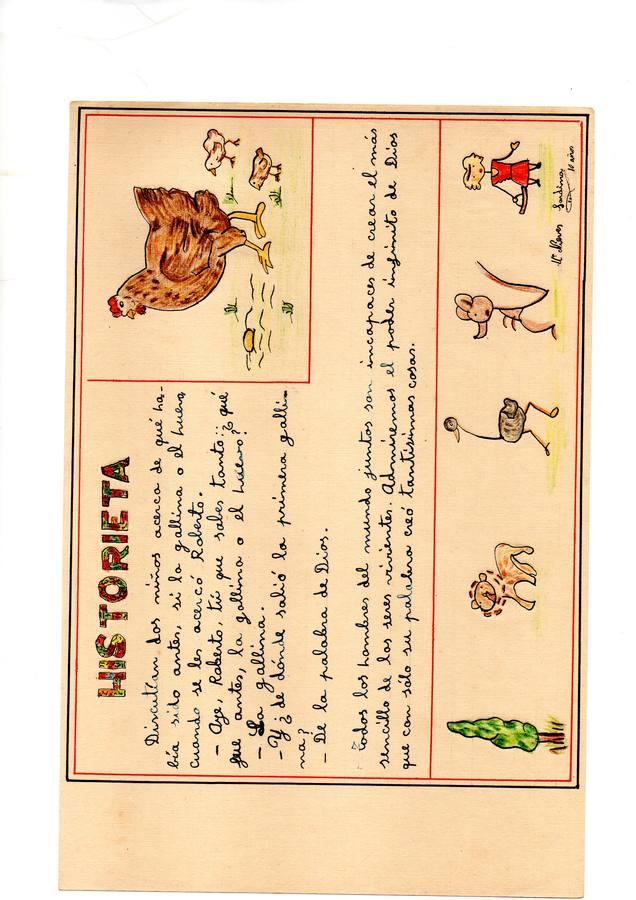 HISTORIETA
Discutían dos niños acerca de qué ha-
bía sido antes, si la gallina o el huevo,
cuando se les acercó Roberto.
- Oye, Roberto, tú que sabes tanto: ¿qué
fue antes, la gallina o el huevo?
- La gallina.
- Y ¿de dónde salió la primera galli-
na?
- De la palabra de Dios.
Todos los hombres del mundo juntos son incapaces de crear el más
sencillo de los seres vivientes. Admiremos el poder infinito de Dios
que con sólo su palabra creó tantísimas cosas.
Mª Nieves Sardinas
10 años